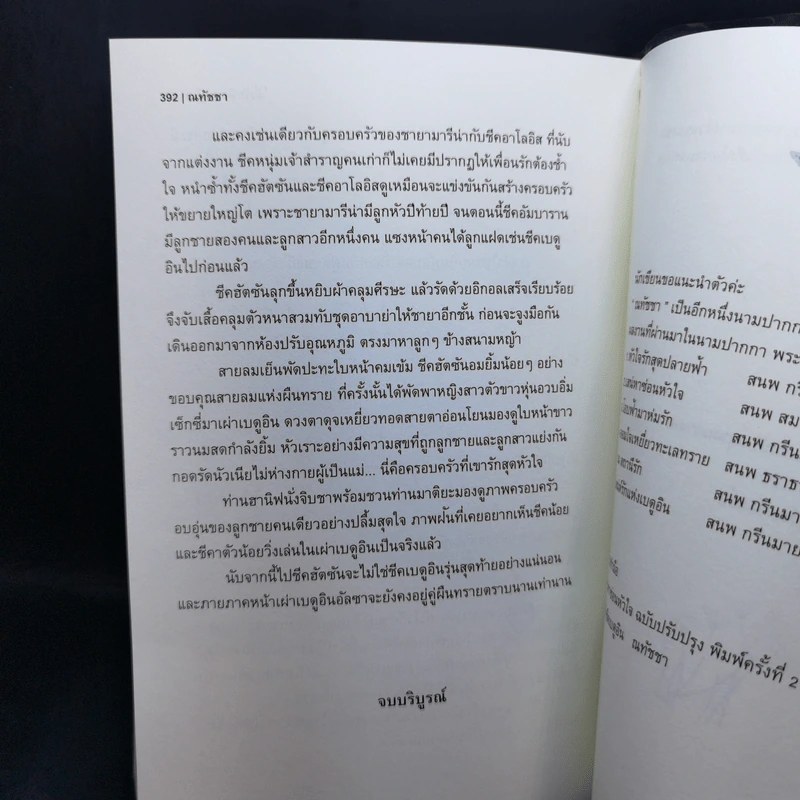 392 | ณทัชชา
และคงเช่นเดียวกับครอบครัวของชายามารีน่ากับชีคอาโลอิส ที่นับ
จากแต่งงาน ชีคหนุ่มเจ้าสำราญคนเก่าก็ไม่เคยมีปรากฏให้เพื่อนรักต้องช้ำ
ใจ หนำซ้ำทั้งชีคฮัตซันและชีคอาโลอิสดูเหมือนจะแข่งขันกันสร้างครอบครัว
ให้ขยายใหญ่โต เพราะชายามารีน่ามีลูกหัวปีท้ายปี จนตอนนี้ชีคอัมบาราน
มีลูกชายสองคนและลูกสาวอีกหนึ่งคน แซงหน้าคนได้ลูกแฝดเช่นชีคเบดู
อินไปก่อนแล้ว
ชีคฮัตซันลุกขึ้นหยิบผ้าคลุมศีรษะ แล้วรัดด้วยอิกอลเสร็จเรียบร้อย
จึงจับเสื้อคลุมตัวหนาสวมทับชุดอาบาย่าให้ชายาอีกชั้น ก่อนจะจูงมือกัน
เดินออกมาจากห้องปรับอุณหภูมิ ตรงมาหาลูกๆ ข้างสนามหญ้า
สายลมเย็นพัดปะทะใบหน้าคมเข้ม ชีคฮัตซันอมยิ้มน้อยๆ อย่าง
ขอบคุณสายลมแห่งผืนทราย ที่ครั้งนั้นได้พัดพาหญิงสาวตัวขาวหุ่นอวบอิ่ม
เซ็กซี่มาเผ่าเบดูอิน ดวงตาดุจเหยี่ยวทอดสายตาอ่อนโยนมองดูใบหน้าขาว
ราวนมสดกำลังยิ้ม หัวเราะอย่างมีความสุขที่ถูกลูกชายและลูกสาวแย่งกัน
กอดรัดนัวเนียไม่ห่างกายผู้เป็นแม่... นี่คือครอบครัวที่เขารักสุดหัวใจ
ท่านฮานิฟนั่งจิบชาพร้อมชวนท่านมาติยะมองดูภาพครอบครัว
อบอุ่นของลูกชายคนเดียวอย่างปลื้มสุดใจ ภาพฝันที่เคยอยากเห็นชีคน้อย
และชีคาตัวน้อยวิ่งเล่นในเผ่าเบดูอินเป็นจริงแล้ว
นับจากนี้ไปชีคฮัตซันจะไม่ใช่ชีคเบดูอินรุ่นสุดท้ายอย่างแน่นอน
และภายภาคหน้าเผ่าเบดูอินอัลซาจะยังคงอยู่คู่ผืนทรายตราบนานเท่านาน
จบบริบูรณ์
นักเขียนขอแนะนำตัวค่ะ
"ณทัชชา" เป็นอีกหนึ่งนามปากกา
ผลงานที่ผ่านมาในนามปากกา พระ
หัวใจรักสุดปลายฟ้า สนพ กรีน
เสน่หาซ่อนหัวใจ สนพ สม
ฟ้ามาห่มรัก สนพ กรีน
เหยี่ยวทะเลทราย สนพ ธราธ
รัก สนพ กรีนมา
แห่งเบดูอิน สนพ กรีนมาย
หัวใจ ฉบับปรับปรุง พิมพ์ครั้งที่ 2
เบดูอิน ณทัชชา